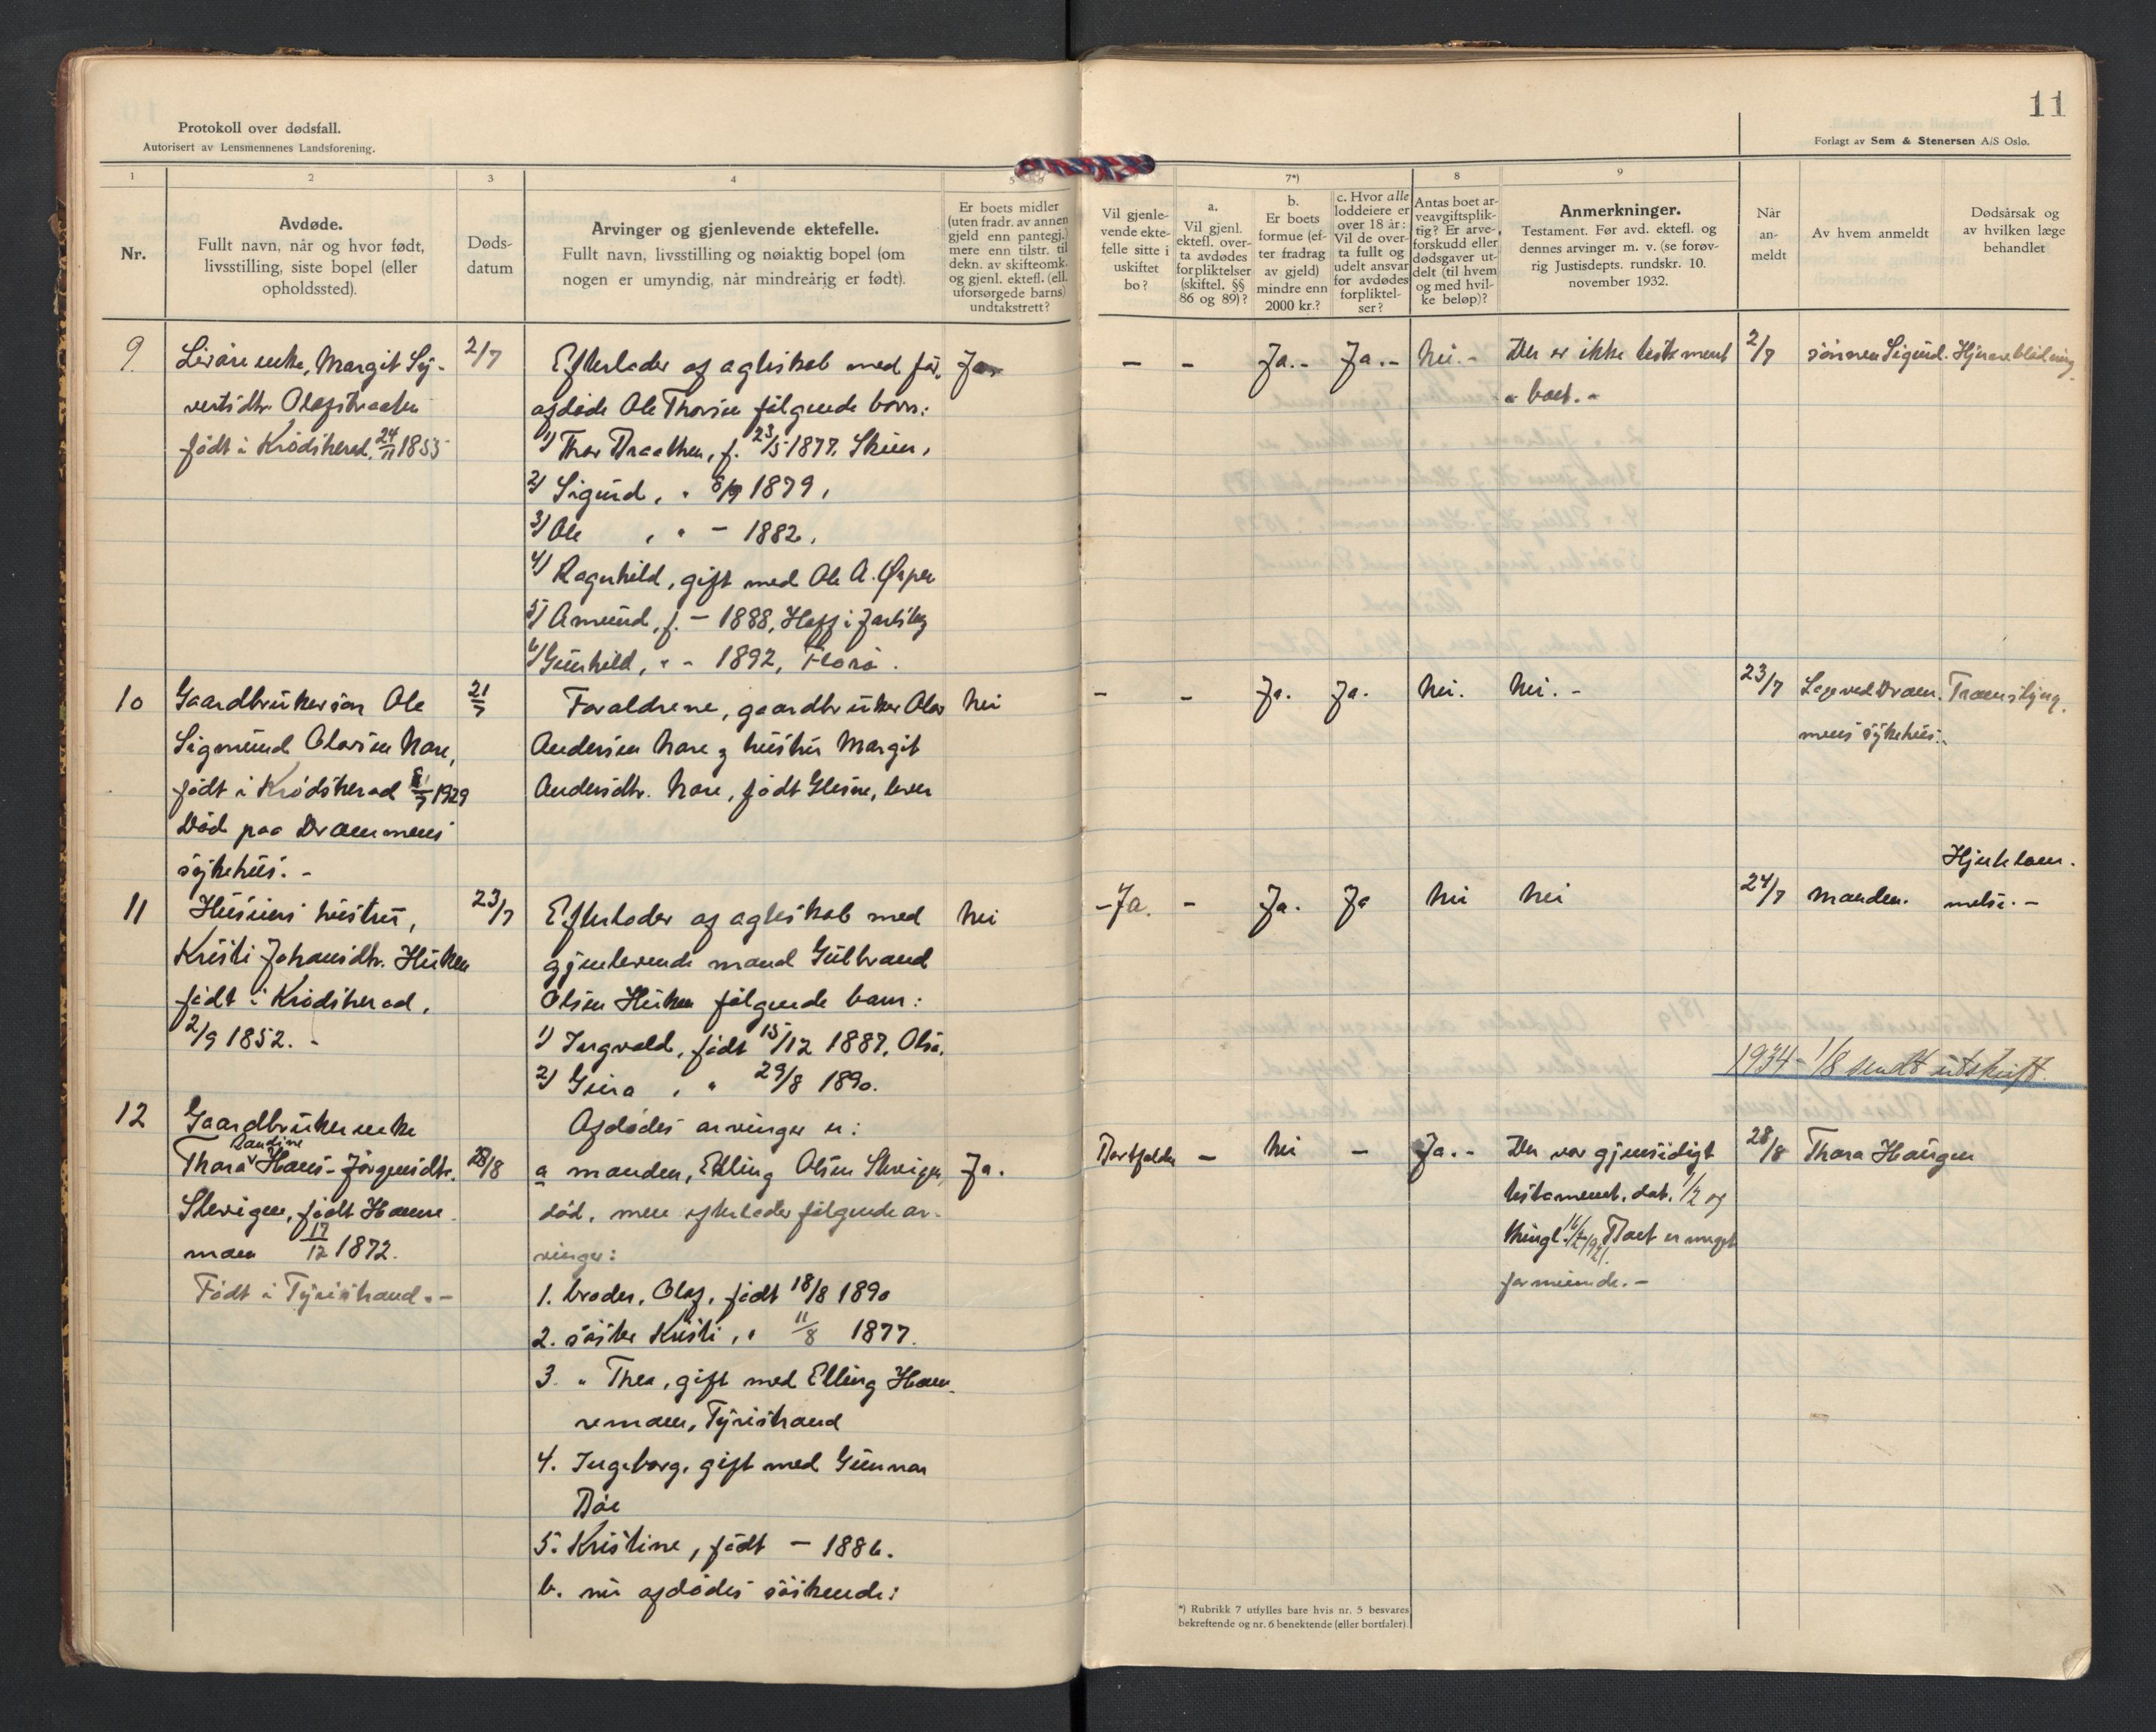 Protokoll over dødsfall.
Autorisert av Lensmennenes Landsforening.
1
2
3
4
5
Nr.
Avdøde.
Fullt navn, når og hvor født,
livsstilling, siste bopel (eller
opholdssted).
Døds-
datum
Arvinger og gjenlevende ektefelle.
Fullt navn, livsstilling og nøiaktig bopel (om
nogen er umyndig, når mindreårig er født).
Er boets midler
(uten fradr. av annen
gjeld enn pantegj.)
mere enn tilstr. til
dekn. av skifteomk.
og gjenl. ektefl. (ell.
uforsørgede barns)
undtakstrett?
9
enke, Margit Sy-
vertsdtr. Olafsbraaten
født i Krødsherad 24/11 1855
2/7
Efterlader af ægteskab med før
afdøde Ole Thorsen følgende børn:
1) Thor Braathen, f. 23/5 1877, Skien,
2) Sigurd, " 1879,
3) Ole, " - 1882,
4) Ragnhild, gift med Ole A. Ørpen
5) Amund, f. - 1888, Hoff i Jarlsberg
6) Gunhild, " - 1892, Florø.
Ja.
10
Gaardbrukersøn Ole
Sigmund Olavsen Nare,
født i Krødsherad 1929
Død paa Drammens
sykehus. -
21/7
Forældrene, gaardbruker Olav
Andersen Nare og hustru Margit
Andersdtr. Nare, født Glesne, lever
Nei
11
Husmans hustru,
Kristi Johansdtr. Heiken
født i Krødsherad,
2/9 1852. -
23/7
Efterlader af ægteskab med
gjenlevende mand Gulbrand
Olsen Heiken følgende barn:
1) Ingvald, født 15/12 1887, Olsen
2) Gina, " 29/8 1890.
Nei
12
Gaardbrukerenke
Randine
Thora Hans-Jørgensdtr.
Skevigen, født Hamre-
moen 17/12 1872.
Født i Tyristrand. -
28/8
Afdødes arvinger er:
a manden, Elling Olsen Skevigen,
død, men efterlader følgende ar-
vinger:
1. broder, Olaf, født 18/8 1890
2. søster Kristi, " 11/8 1877.
3. " Thea, gift med Elling Ham-
remoen, Tyristrand
4. Ingeborg, gift med Gunnar
Bøe
5. Kristine, født - 1886.
b. nu afdødes søskende:
Ja.
11
Forlagt av Sem & Stenersen A/S Oslo.
7*)
8
9
Vil gjenle-
vende ekte-
felle sitte i
uskiftet
bo?
a.
Vil gjenl.
ektefl. over-
ta avdødes
forpliktelser
(skiftel. §§
86 og 89)?
b.
Er boets
formue (ef-
ter fradrag
av gjeld)
mindre enn
2000 kr.?
c. Hvor alle
loddeiere er
over 18 år:
Vil de over-
ta fullt og
udelt ansvar
for avdødes
forpliktel-
ser?
Antas boet ar-
veavgiftsplik-
tig? Er arve-
forskudd eller
dødsgaver ut-
delt (til hvem
og med hvil-
ke beløp)?
Anmerkninger.
Testament. Før avd. ektefl. og
dennes arvinger m. v. (se forøv-
rig Justisdepts. rundskr. 10.
november 1932.
Når
an-
meldt
Av hvem anmeldt
Dødsårsak og
av hvilken læge
behandlet
- - Ja.- Ja.- Nei.- Der er ikke testament
i boet. -
2/7 sønnen Sigurd. Hjerneblødning.
- - Ja. Ja. Nei. Nei. -
23/7 Læge ved Dram-
mens sykehus.
- Ja. - Ja. Ja Nei Nei
24/7 manden.
Hjertelam-
melse. -
1934 - 1/8 sendt utskrift.
Bortfalder - Nei - Ja.- Der var gjensidigt
testament, dat. 1/2 og
thingl. 16/2 1921. Boet er meget
formuende. -
28/8 Thora Haugen
*) Rubrikk 7 utfylles bare hvis nr. 5 besvares
bekreftende og nr. 6 benektende (eller bortfaler).